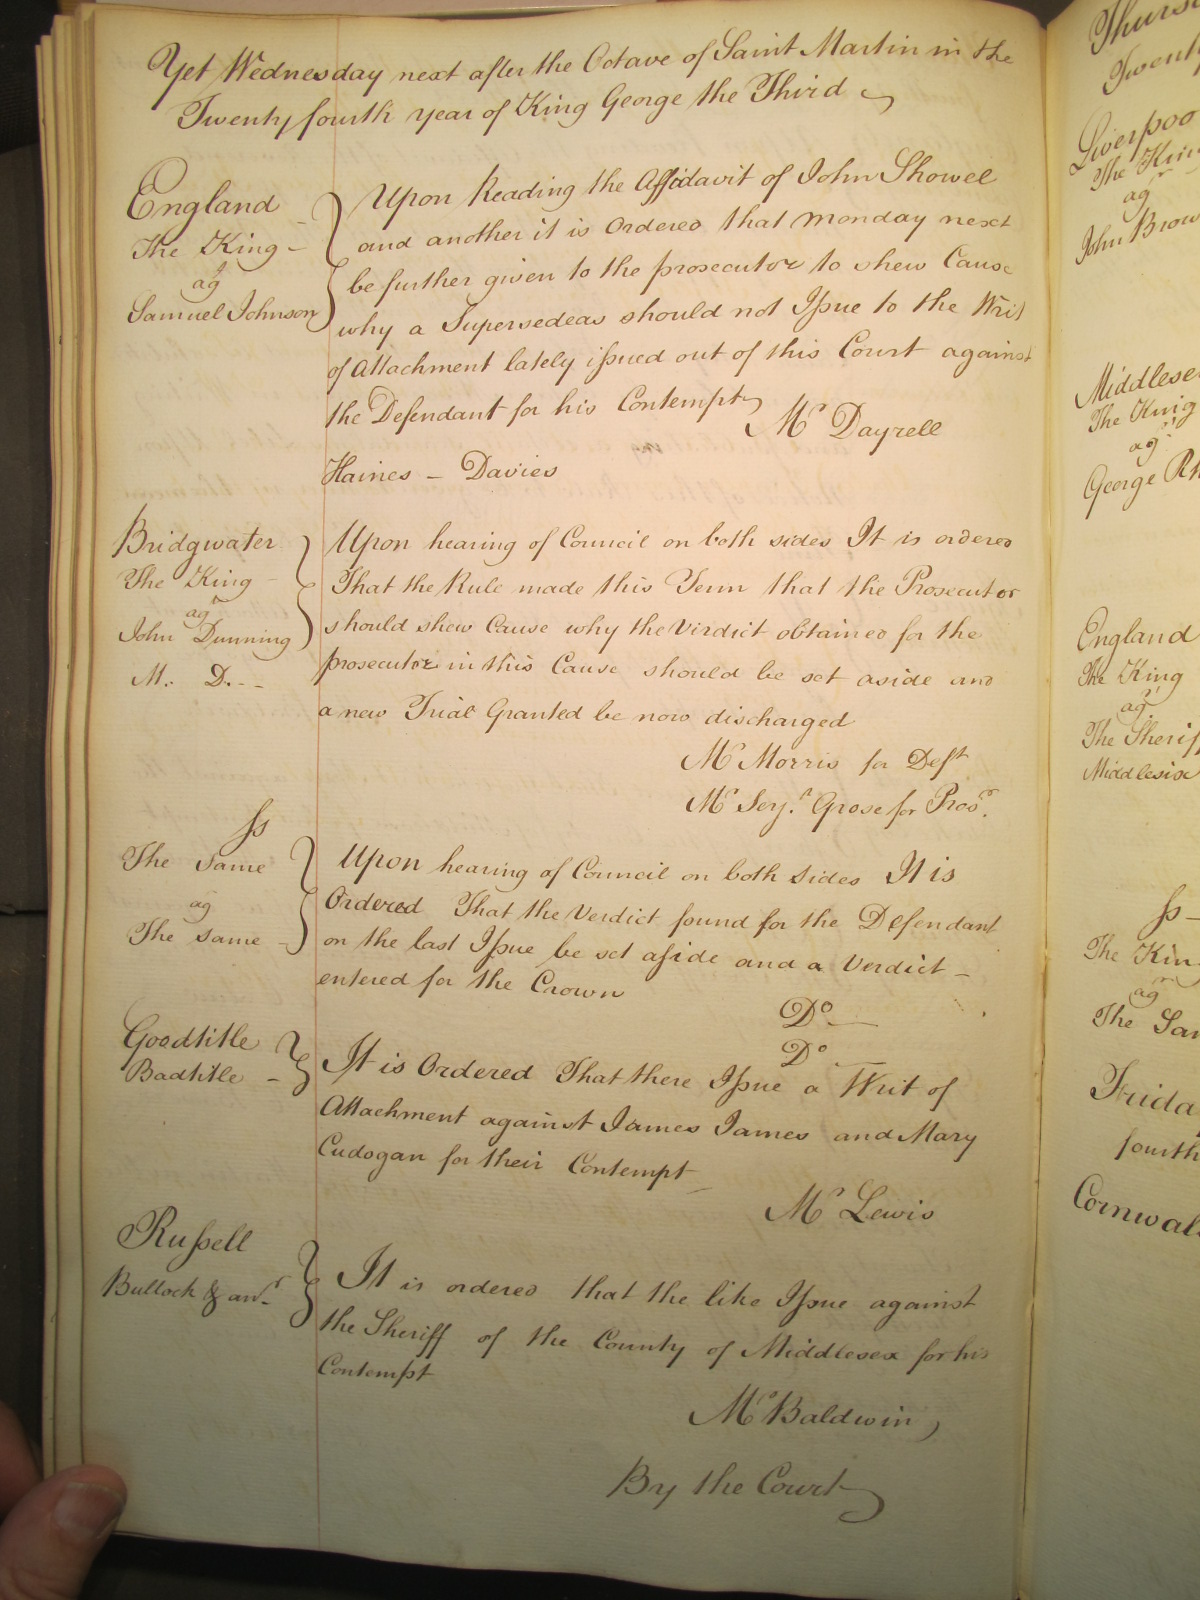 Yet Wednesday next after the Octave of Saint Martin in the
Twenty fourth year of King George the Third
England
The King
agt
Samuel Johnson
Upon Reading the Affidavit of John Showel
and another it is Ordered that Monday next
be further given to the prosecutor to shew Cause
why a Supersedeas should not Issue to the Writ
of Attachment lately issued out of this Court against
the Defendant for his Contempt
Mr Dayrell
Haines – Davies
Bridgwater
The King
agt
John Dunning
M. D.
Upon hearing of Council on both sides It is ordered
That the Rule made this Term that the Prosecutor
should shew Cause why the Virdict obtained for the
prosecutor in this Cause should be set aside and
a new Trial Granted be now discharged
Mr Morris for Deft
Mr Serj.t Grose for Prosr.
Ss
The same
ag
The same
Upon hearing of Council on both sides It is
Ordered That the Verdict found for the Defendant
on the last Issue be set aside and a Verdict
entered for the Crown
Do
Do
Goodtitle
Badtitle
It is Ordered That there Issue a Writ of
Attachment against James James and Mary
Cudogan for their Contempt
Mr Lewis
Russell
Bullock & anr
It is ordered that the like Issue against
the Sheriff of the County of Middlesex for his
Contempt
Mr Baldwin
By the Court
Thurs
Twent
Liverpoo
The Kin
agt
John Brow
Middlese
The King
agt
George Rh
England
The King
agt
The Sherif
Middlesix
Ss
The Kin
agt
The Sa
Frida
fourth
Cornwal